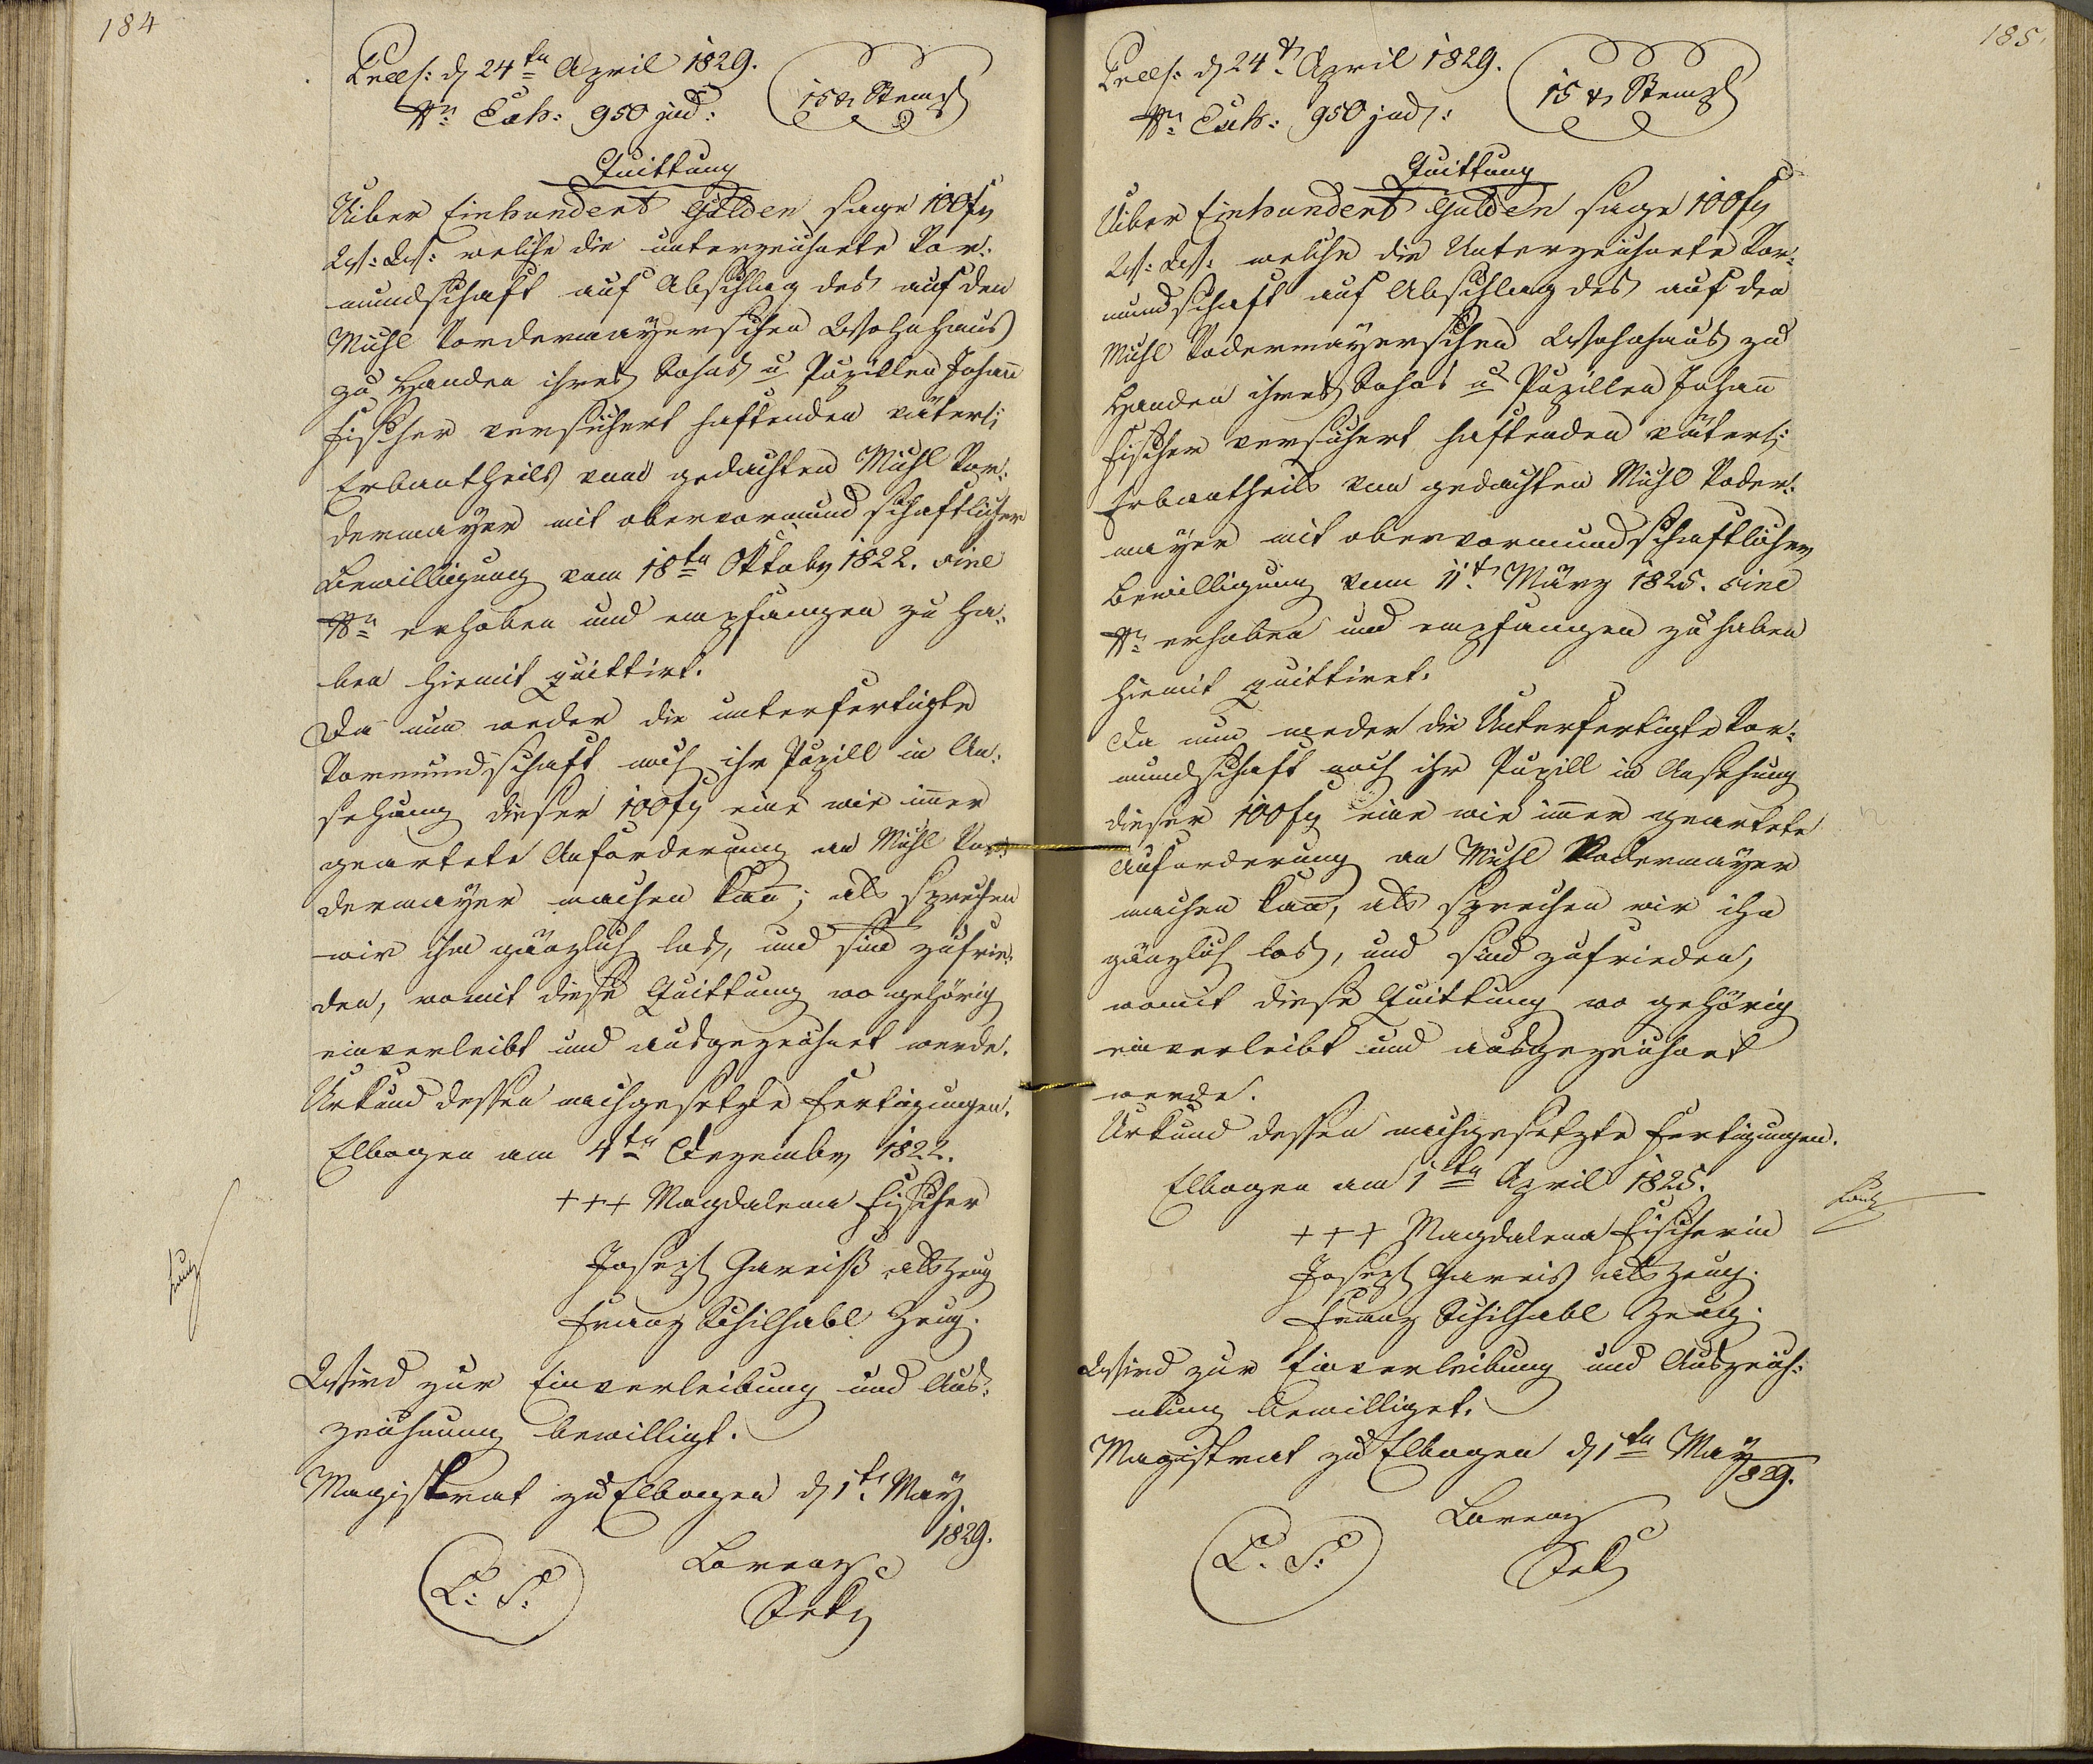 184
Praes: d 24ten April 1829.
Nro Exh: 950 jud:
15 xr Stempl
Quittung
Uiber Einhundert Gulden sage 100 fl
W: W: welche die unterzeichnete Vor:
mundschaft auf Abschlag des auf den
Michl Vordermayerschen Wohnhaus
zu Handen ihres Sohns u Pupillen Johañ
Fischer versichert haftenden väterl:
Erbantheils vom gedachten Michl Vor:
dermayer mit obervormundschaftlicher
Bewilligung vom 18ten Oktober 1822.
Nro erhoben und empfangen zu ha:
ben hiemit quittirt.
Da nun weder die unterfertigte
Vormundschaft noch ihr Pupill in An:
sehung dieser 100 fl eine wie im̄er
geartete Anforderung an Michl Vor:
dermayer machen kañ; als sprechen
wir ihn gänzlich los, und sind zufrie:
den, womit diese Quittung wo gehörig
einverleibt und ausgezeichnet werde.
Urkund dessen nachgesetzte Fertigungen.
Elbogen am 4ten Dezember 1822.
+++ Magdalena Fischer
Joseph Gareiß als Zeug
Franz Schilhabl Zeug.
Wird zur Einverleibung und Aus:
zeichnung bewilligt.
Magistrat zu Elbogen d 1t. May
1829.
L: S:
Lorenz
Sekr
185.
Praes: d 24t. April 1829.
Nro Exh: 950 jud:
15 xr Stempl
Quittung
Uiber Einhundert Gulden sage 100 fl
W: W: welche die Unterzeichnete Vor:
mundschaft auf Abschlag des auf den
Michl Vodermayerschen Wohnhaus zu
Handen ihres Sohns u Pupillen Johañ
Fischer versichert haftenden väterl:
Erbantheils vom gedachten Michl Voder:
mayer mit obervormundschaftlicher
Bewilligung vom 11t. März 1825.
Nro erhoben und empfangen zu haben
hiemit quittiret.
Da nun weder die Unterfertigte Vor:
mundschaft noch ihr Pupill in Ansehung
dieser 100 fl eine wie im̄er geartete
Anforderung an Michl Vodermayer
machen kañ, als sprechen wir ihn
gänzlich los, und sind zufrieden,
womit diese Quittung wo gehörig
einverleibt und ausgezeichnet
werde.
Urkund dessen nachgesetzte Fertigungen.
Elbogen am 1ten April 1825.
+++ Magdalena Fischerin
Joseph Gareis als Zeug.
Franz Schilhabl Zeug.
Wird zur Einverleibung und Auszeich:
nung bewilliget.
Magistrat zu Elbogen d 1ten May
1829.
L. S.
Lorenz
Sekr